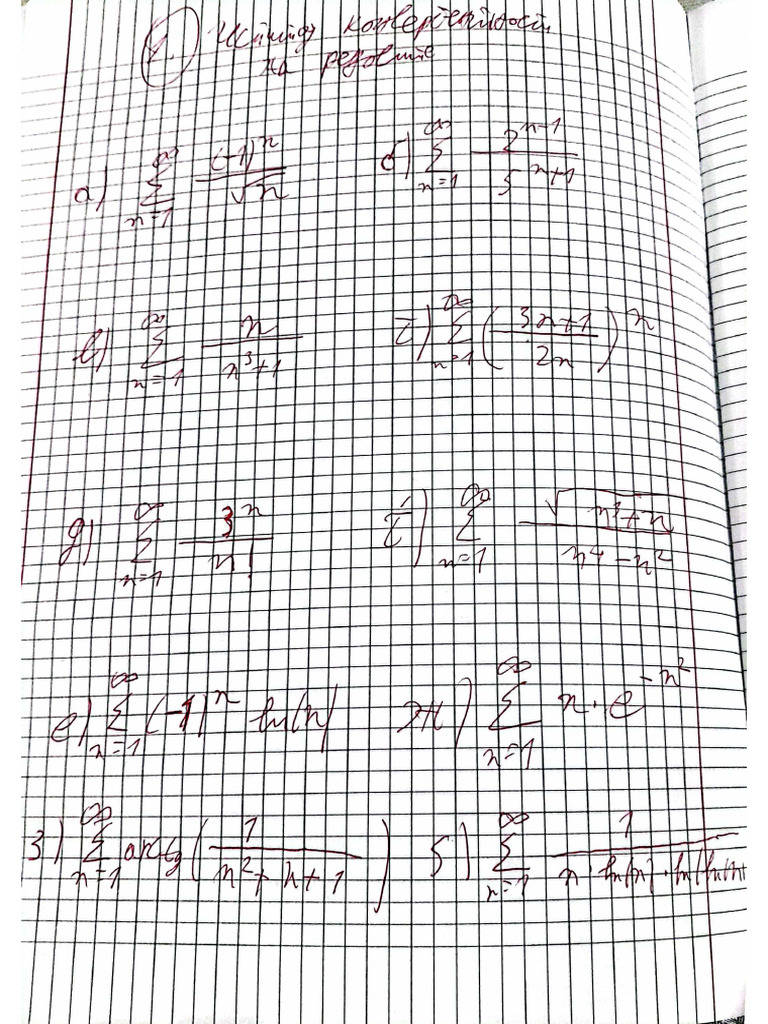 1. Испитај конвергентност
на редовите
а) \sum_{n=1}^{\infty} \frac{(-1)^n}{\sqrt{n}} б) \sum_{n=1}^{\infty} \frac{2^{n-1}}{5^{n+1}}
в) \sum_{n=1}^{\infty} \frac{n}{n^3+1} г) \sum_{n=1}^{\infty} \left(\frac{3n+1}{2n}\right)^n
д) \sum_{n=1}^{\infty} \frac{3^n}{n!} ѓ) \sum_{n=1}^{\infty} \frac{\sqrt{n^3+n}}{n^4-n^2}
е) \sum_{n=1}^{\infty} (-1)^n ln(n) ж) \sum_{n=1}^{\infty} n \cdot e^{-n^2}
з) \sum_{n=1}^{\infty} arctg \left(\frac{1}{n^2+n+1}\right) ѕ) \sum_{n=1}^{\infty} \frac{1}{n \cdot ln(n) \cdot ln(ln(n}